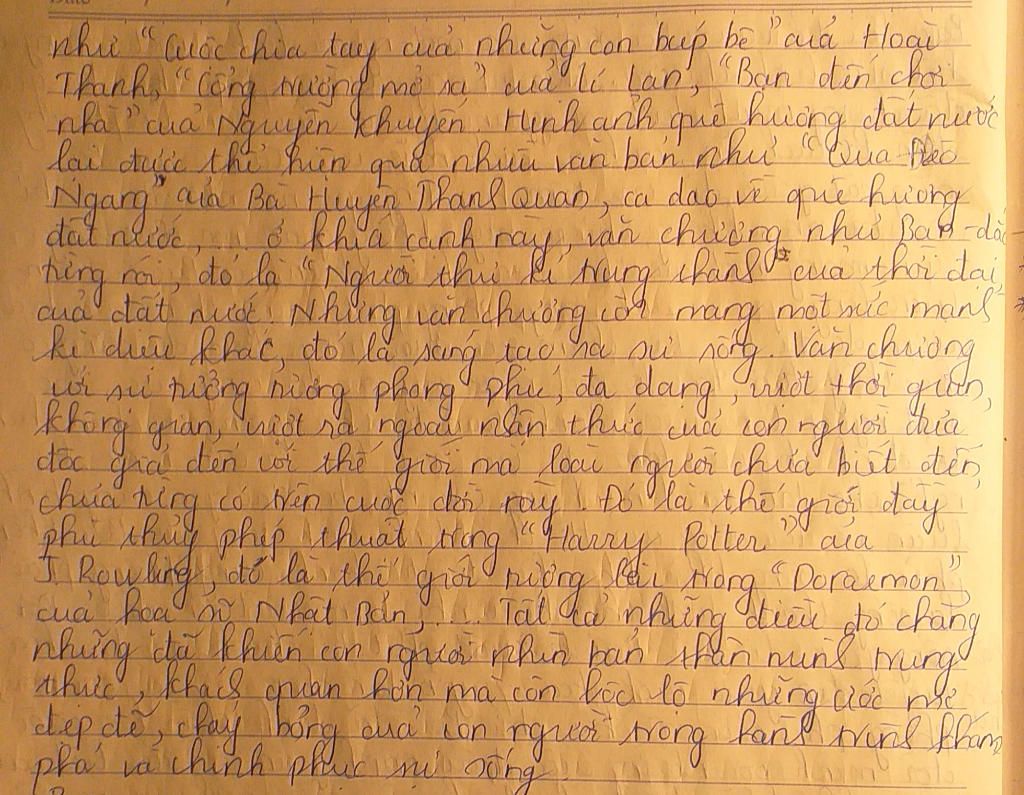 như "Cuộc chia tay của những con búp bê" của Hoài
Thanh, "Cổng trường mở ra" của Lí Lan, "Bạn đến chơi
nhà" của Nguyễn Khuyến. Hình ảnh quê hương đất nước
lại được thể hiện qua nhiều văn bản như "Qua Đèo
Ngang" của Bà Huyện Thanh Quan, ca dao về quê hương
đất nước,... ở khía cạnh này, văn chương như Ban-dắc
từng nói, đó là "Người thư kí trung thành" của thời đại
của đất nước. Nhưng văn chương còn mang một sức mạnh
kì diệu khác, đó là sáng tạo ra sự sống. Văn chương
với sự tưởng tượng phong phú, đa dạng, vượt thời gian,
không gian, vượt ra ngoài nhận thức của con người đưa
độc giả đến với thế giới mà loài người chưa biết đến,
chưa từng có trên cuộc đời này. Đó là thế giới đầy
phù thủy phép thuật trong "Harry Potter" của
J. Rowling, đó là thế giới tương lai trong "Doraemon",
của họa sĩ Nhật Bản,... Tất cả những điều đó chẳng
những đã khiến con người nhìn bản thân mình trung
thực, khách quan hơn mà còn bộc lộ những ước mơ
đẹp đẽ, cháy bỏng của con người trong hành trình khám
phá và chinh phục sự sống.